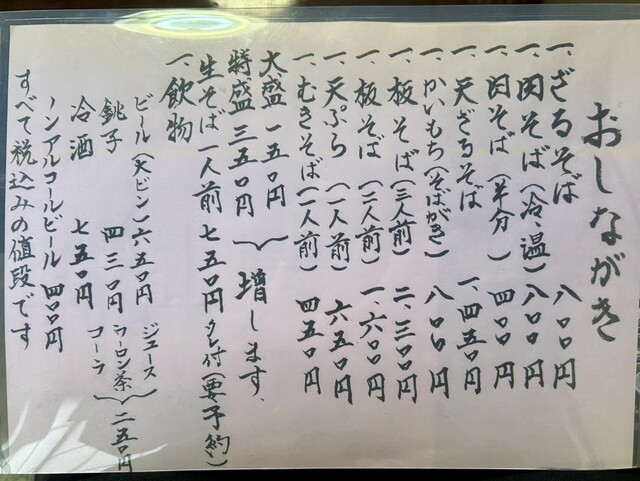 おしながき
一、ざるそば 八〇〇円
一、肉そば（冷、温） 八〇〇円
一、肉そば（半分） 四〇〇円
一、天ざるそば 一、四五〇円
一、かいもち（そばがき） 八〇〇円
一、板そば（三人前） 二、三〇〇円
一、板そば（二人前） 一、六〇〇円
一、天ぷら（一人前） 六五〇円
一、むきそば（一人前） 四五〇円
大盛 一五〇円
特盛 三五〇円
増します、
生そば 一人前 七五〇円 タレ付（要予約）
一、飲物
ビール（大ビン）六五〇円
銚子 四三〇円
冷酒 七五〇円
ノンアルコールビール 四〇〇円
ジュース
ウーロン茶
コーラ
二五〇円
すべて税込みの値段です